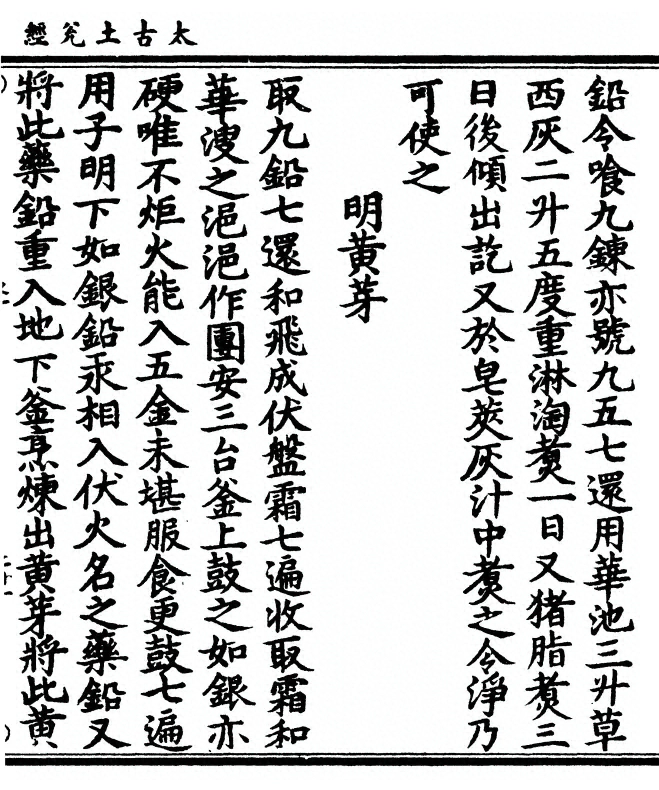 太古土兊經
鉛令喰九鍊亦號九五七還用華池三升草
西灰二升五度重淋淘煑一日又猪脂煑三
日後傾出訖又於皂莢灰汁中煑之令淨乃
可使之
明黃芽
取九鉛七還和飛成伏盤霜七遍收取霜和
華溲之浥浥作團安三台釜上鼓之如銀亦
硬唯不炬火能入五金未堪服食更鼓七遍
用子明下如銀鉛汞相入伏火名之藥鉛又
將此藥鉛重入地下釜烹煉出黃芽將此黃